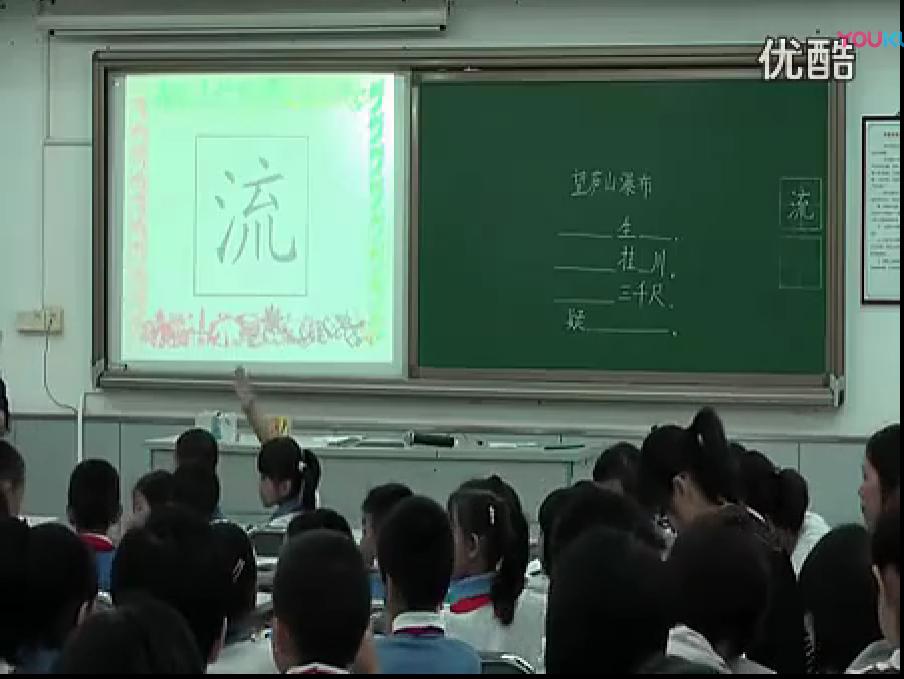 YOUKU
优酷
流
望庐山瀑布
______生___.
______挂__川.
______三千尺.
疑________.
流